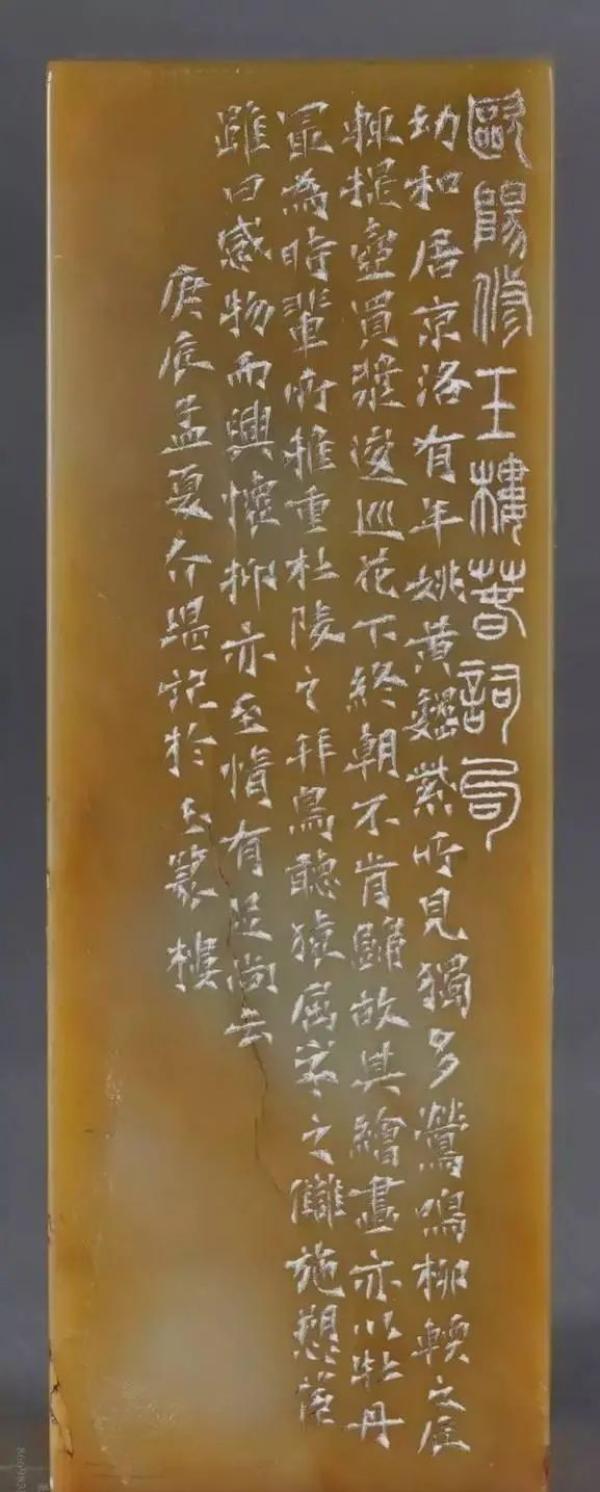 歐陽修玉樓春詞句
幼和居京洛有年姚黃魏紫所見獨多鶯鳴柳輭之
輒提壺買漿逡巡花下終朝不肯歸故其繪畫亦以牡丹
最為時輩所推重杜陵之拜鳥聽猿屈宋之施
雖曰感物而興懷抑亦至情有足尚云
庚辰孟夏介堪記於玉篆樓